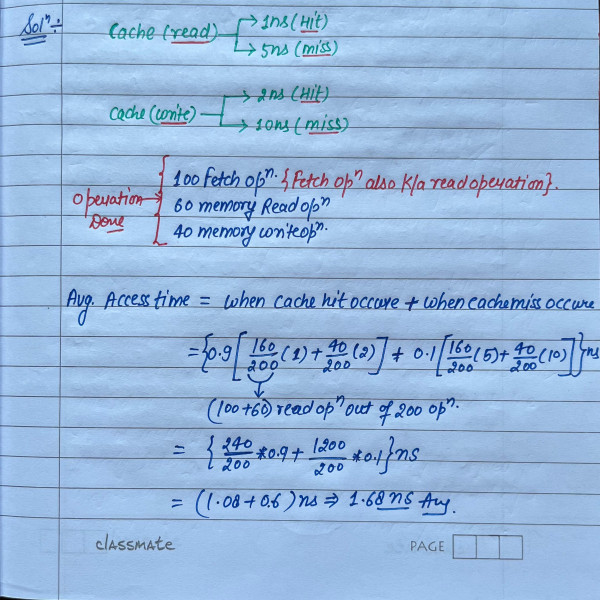 Solⁿ÷
Cache (read) → 1ns (Hit)
→ 5ns (miss)
Cache (write) → 2ns (Hit)
→ 10ns (miss)
Operation Done → 100 Fetch opⁿ. {Fetch opⁿ also K/a read operation}.
60 memory Read opⁿ
40 memory write opⁿ.
Avg. Access time = when cache hit occure + when cache miss occure
= {0.9[160/200 (1) + 40/200 (2)] + 0.1[160/200 (5) + 40/200 (10)]}ns
(100+60) read opⁿ out of 200 opⁿ.
= {240/200 *0.9 + 1200/200 *0.1}ns
= (1.08 + 0.6)ns ⇒ 1.68 ns Avg.
classmate
PAGE